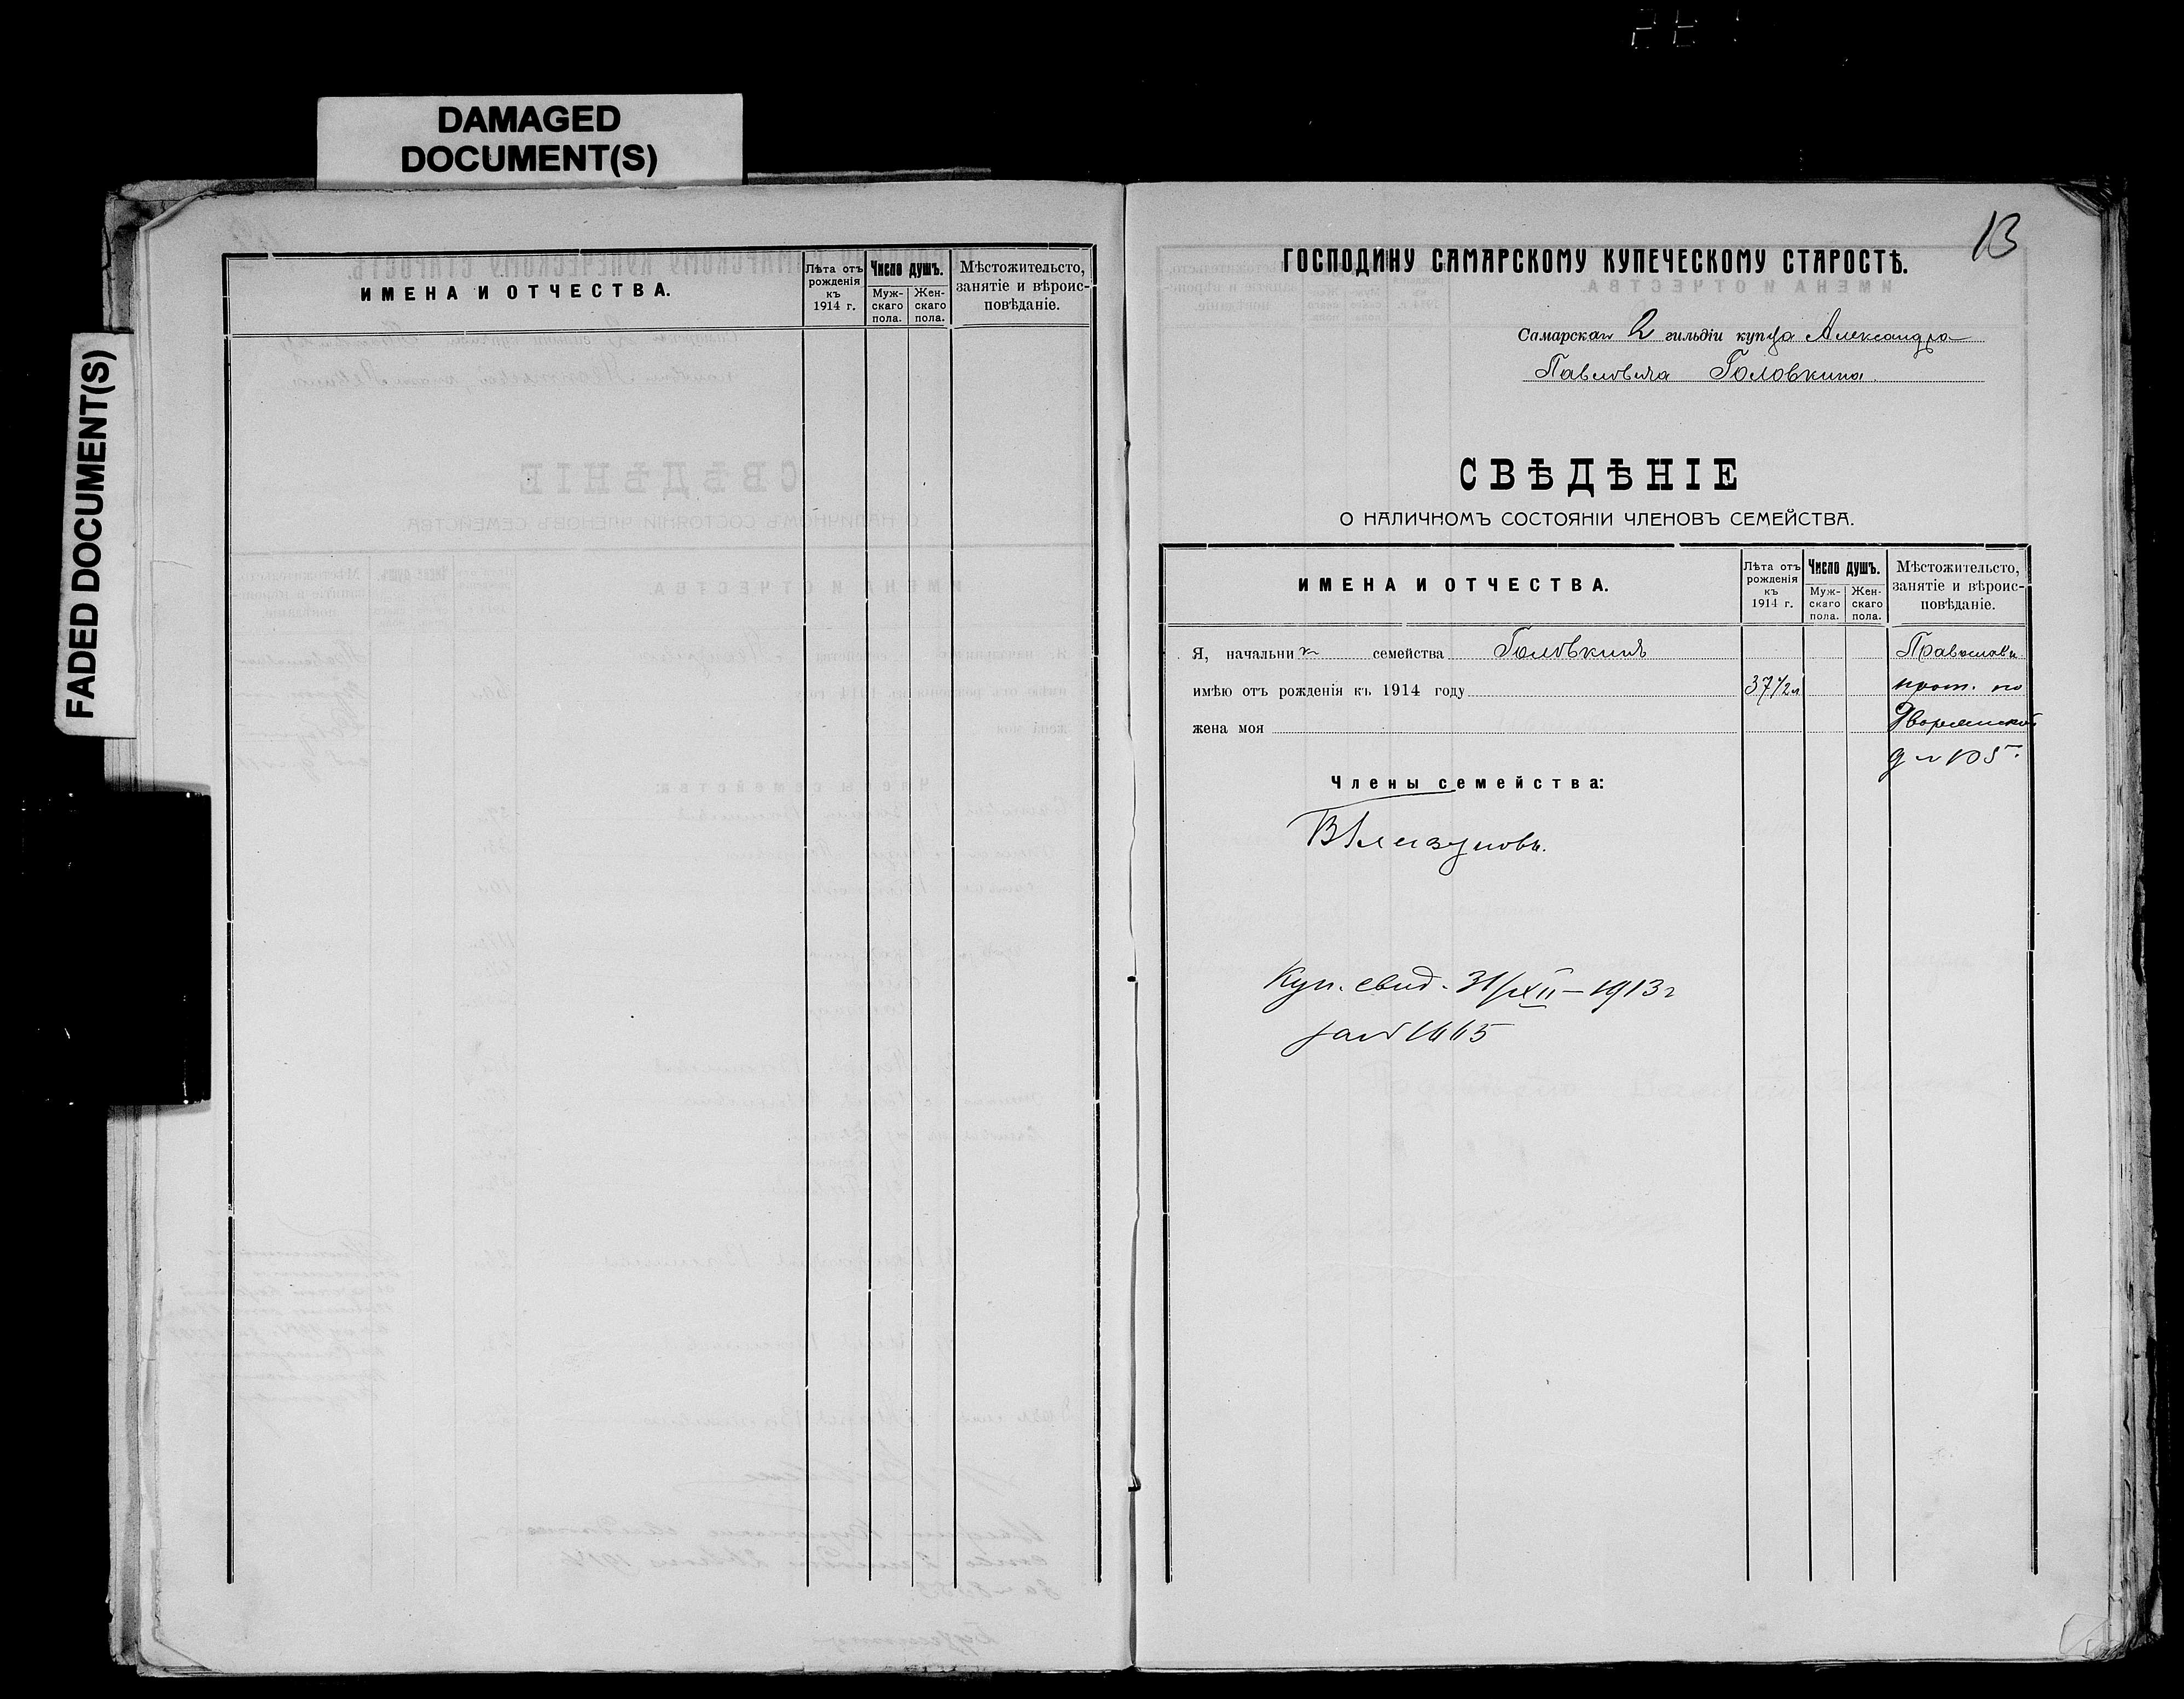 DAMAGED
DOCUMENT(S)
FADED DOCUMENT(S)
ИМЕНА И ОТЧЕСТВА.
Лѣта отъ рожденія къ 1914 г.
Число душъ.
Муж-скаго пола.
Жен-скаго пола.
Мѣстожительсто, занятіе и вѣроис-повѣданіе.
13
ГОСПОДИНУ САМАРСКОМУ КУПЕЧЕСКОМУ СТАРОСТѢ.
Самарскаго 2 гильдіи купца Александра
Павловича Головкина.
СВѢДѢНІЕ
О НАЛИЧНОМЪ СОСТОЯНІИ ЧЛЕНОВЪ СЕМЕЙСТВА.
ИМЕНА И ОТЧЕСТВА.
Лѣта отъ рожденія къ 1914 г.
Число душъ.
Муж-скаго пола.
Жен-скаго пола.
Мѣстожительсто, занятіе и вѣроис-повѣданіе.
Я, начальник семейства Головкинъ Православн
имѣю отъ рожденія къ 1914 году 37 1/2 л прот. по
жена моя Дворянской
д № 105.
Члены семейства:
Куп. свид. 31/XII–1913 г
за №